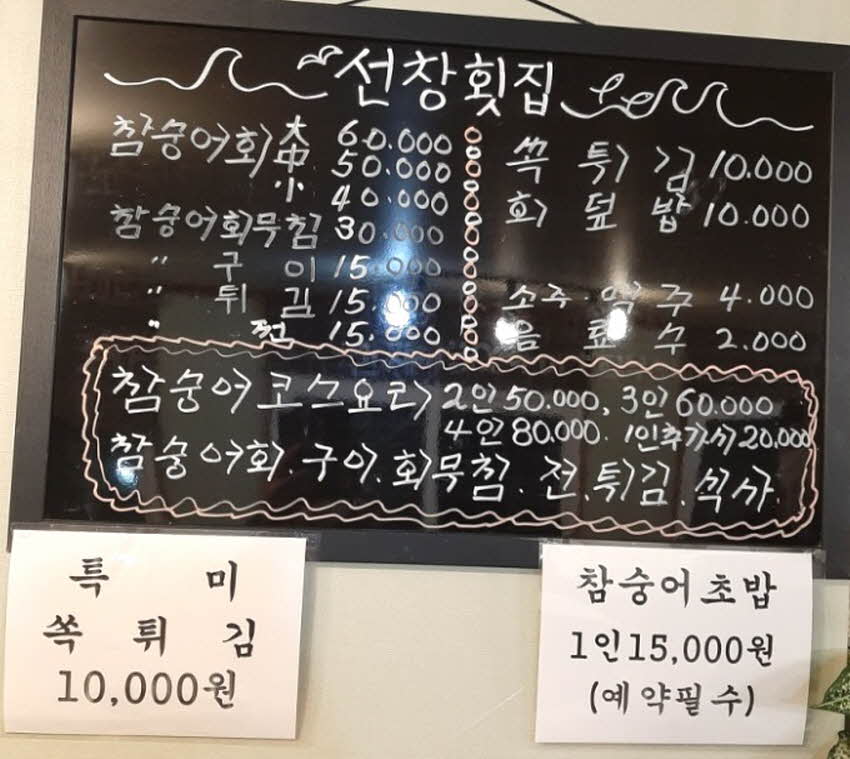 선창횟집
참숭어회 大 60.000
中 50.000
小 40.000
참숭어회무침 30.000
〃 구이 15.000
〃 튀김 15.000
〃 전 15.000
쏙튀김 10.000
회덮밥 10.000
소주·약주 4.000
음료수 2.000
참숭어코스요리 2인 50.000, 3인 60.000
4인 80.000. 1인추가시 20,000
참숭어회.구이.회무침.전.튀김.식사.
특미
쏙튀김
10,000원
참숭어초밥
1인15,000원
(예약필수)